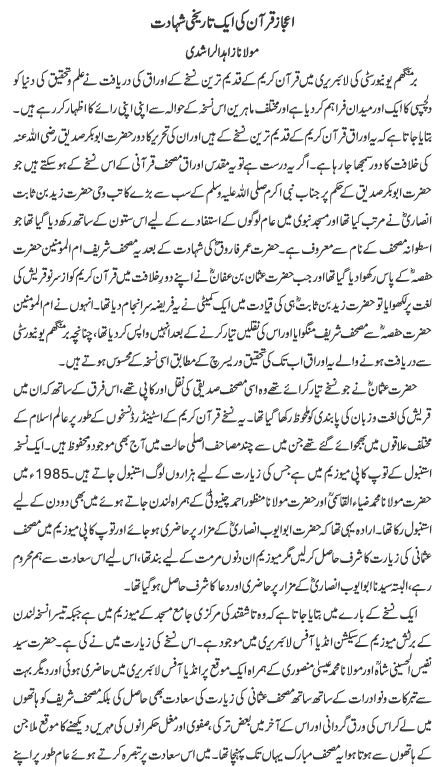 اعجاز قرآن کی ایک تاریخی شہادت
مولانا زاہد الراشدی
برمنگھم یونیورسٹی کی لائبریری میں قرآن کریم کے قدیم ترین نسخے کے اوراق کی دریافت نے علم و تحقیق کی دنیا کو
دلچسپی کا ایک اور میدان فراہم کر دیا ہے اور مختلف ماہرین اس نسخہ کے حوالہ سے اپنی اپنی رائے کا اظہار کر رہے ہیں۔
بتایا جاتا ہے کہ یہ اوراق قرآن کریم کے قدیم ترین نسخے کے ہیں اور ان کی تحریر کا دور حضرت ابوبکر صدیق رضی اللہ عنہ
کی خلافت کا دور سمجھا جا رہا ہے۔ اگر یہ درست ہے تو یہ مقدس اوراق مصحف قرآنی کے اس نسخے کے ہو سکتے ہیں جو
حضرت ابوبکر صدیق کے حکم پر جناب نبی اکرم صلی اللہ علیہ وسلم کے سب سے بڑے کاتب وحی حضرت زید بن ثابت
انصاریؓ نے مرتب کیا تھا اور مسجد نبوی میں عام لوگوں کے استفادے کے لیے اس ستون کے ساتھ رکھ دیا گیا تھا جو
اسطوانہ مصحف کے نام سے معروف ہے۔ حضرت عمر فاروقؓ کی شہادت کے بعد یہ مصحف شریف ام المؤمنین حضرت
حفصہؓ کے پاس رکھوا دیا گیا تھا اور جب حضرت عثمان بن عفانؓ نے اپنے دور خلافت میں قرآن کریم کو از سر نو قریش کی
لغت پر لکھوایا تو حضرت زید بن ثابتؓ ہی کی قیادت میں ایک کمیٹی نے یہ فریضہ سر انجام دیا تھا۔ انہوں نے ام المؤمنین
حضرت حفصہؓ سے مصحف شریف منگوایا اور اس کی نقلیں تیار کرنے کے بعد انہیں واپس کر دیا تھا، چنانچہ برمنگھم یونیورسٹی
سے دریافت ہونے والے یہ اوراق اب تک کی تحقیق و ریسرچ کے مطابق اسی نسخہ کے محسوس ہوتے ہیں۔
حضرت عثمانؓ نے جو نسخے تیار کرائے تھے وہ اسی مصحف صدیقی کی نقل اور کاپی تھے، اس فرق کے ساتھ کہ ان میں
قریش کی لغت و زبان کی پابندی کو ملحوظ رکھا گیا تھا۔ یہ نسخے قرآن کریم کے اسٹینڈرڈ نسخوں کے طور پر عالم اسلام کے
مختلف علاقوں میں بھجوائے گئے تھے جن میں سے چند مصاحف اصلی حالت میں آج بھی موجود و محفوظ ہیں۔ ایک نسخہ
استنبول کے توپ کاپی میوزیم میں ہے جس کی زیارت کے لیے ہزاروں لوگ استنبول جاتے ہیں۔ 1985ء میں
حضرت مولانا محمد ضیاء القاسمیؒ اور حضرت مولانا منظور احمد چنیوٹیؒ کے ہمراہ لندن جاتے ہوئے میں بھی دو دن کے لیے
استنبول رکا تھا۔ ارادہ یہی تھا کہ حضرت ابو ایوب انصاریؓ کے مزار پر حاضری ہو جائے اور توپ کاپی میوزیم میں مصحف
عثمانی کی زیارت کا شرف حاصل کر لیں مگر میوزیم ان دنوں مرمت کے لیے بند تھا، اس لیے اس سعادت سے ہم محروم
رہے، البتہ سیدنا ابو ایوب انصاریؓ کے مزار پر حاضری اور دعا کا شرف حاصل ہو گیا تھا۔
ایک نسخے کے بارے میں بتایا جاتا ہے کہ وہ تاشقند کی مرکزی جامع مسجد کے میوزیم میں ہے جبکہ تیسرا نسخہ لندن
کے برٹش میوزیم کے سیکشن انڈیا آفس لائبریری میں موجود ہے۔ اس نسخے کی زیارت میں نے کی ہے۔ حضرت سید
نفیس الحسینی شاہؒ اور مولانا محمد عیسیٰ منصوری کے ہمراہ ایک موقع پر انڈیا آفس لائبریری میں حاضری ہوئی اور دیگر بہت
سے تبرکات و نوادرات کے ساتھ ساتھ مصحف عثمانی کی زیارت کی سعادت بھی حاصل کی بلکہ مصحف شریف کو ہاتھوں
میں لے کر اس کی ورق گردانی اور اس کے آخر میں بعض ترکی، صفوی اور مغل حکمرانوں کی مہریں دیکھنے کا موقع ملا جن
کے ہاتھوں سے ہوتا ہوا یہ مصحف مبارک یہاں تک پہنچا تھا۔ میں اس سعادت پر تبصرہ کرتے ہوئے عام طور پر اپنے